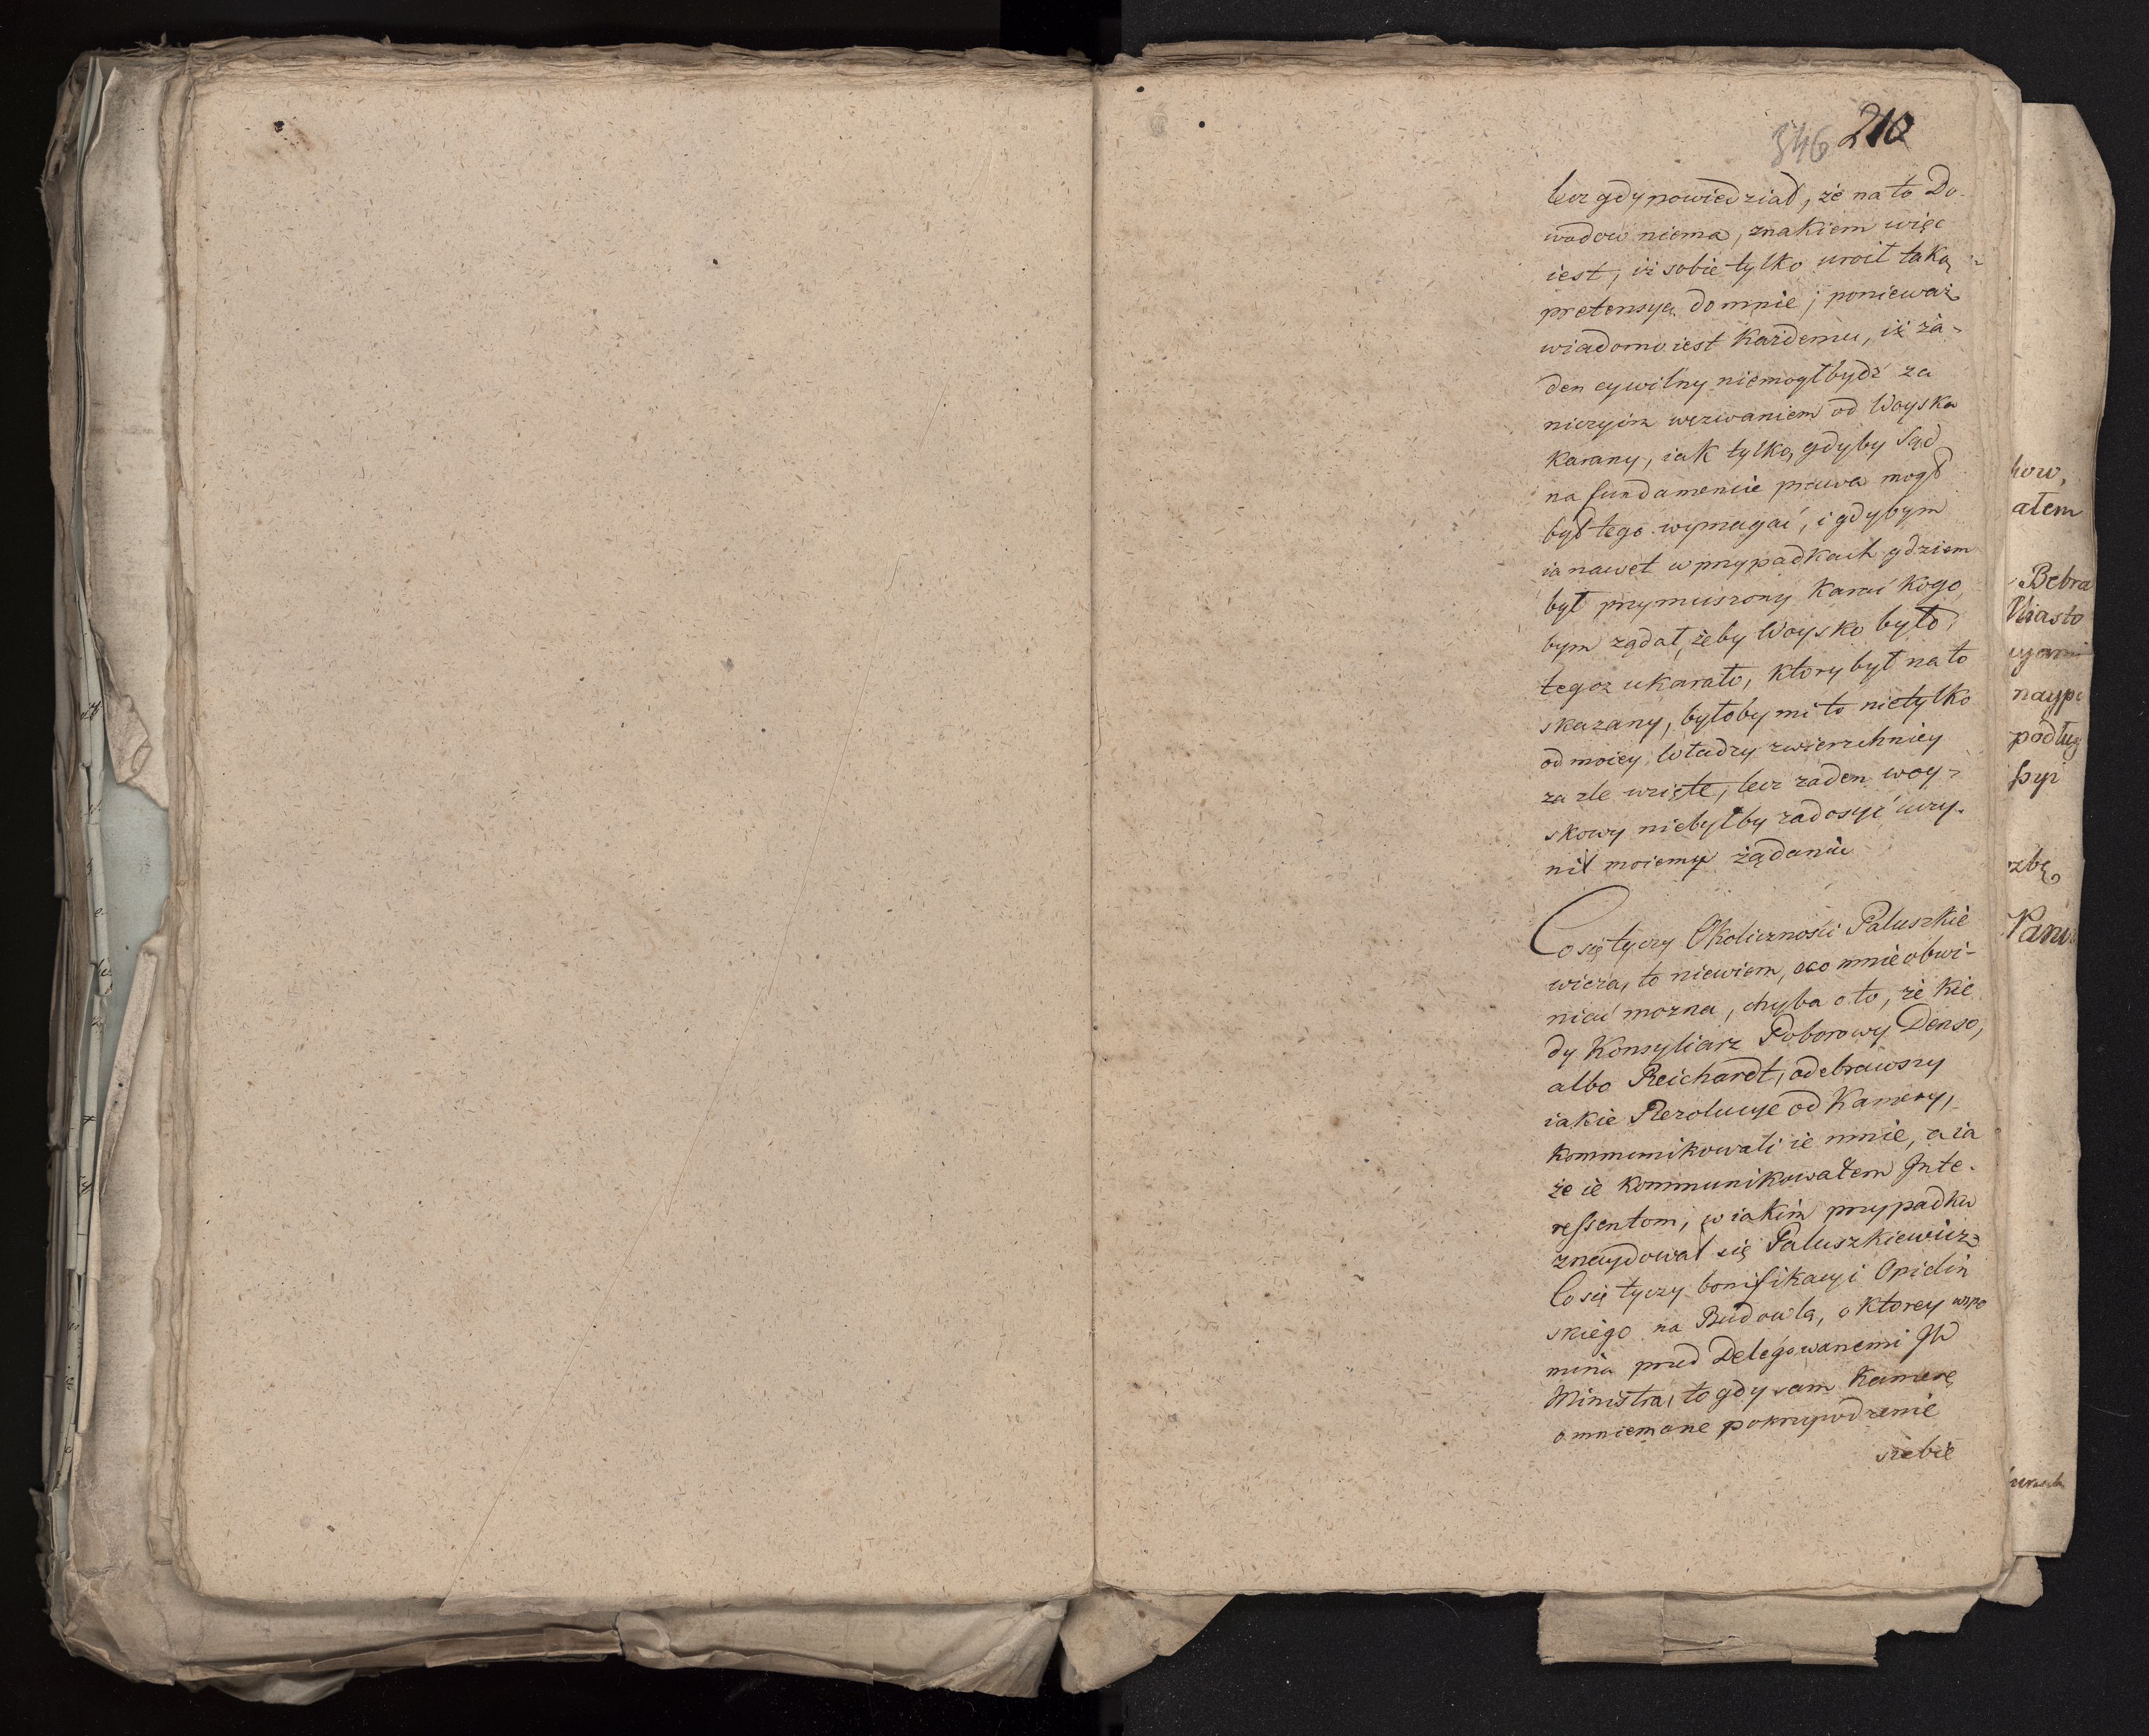 346 210
lecz gdy powiedział, że na to Do-
wodow niema, znakiem więc
iest, iż sobie tylko uroił taką
pretensyą do mnie; ponieważ
wiadomo iest każdemu, iż ża-
den cywilny niemogł bydź za
niczyim wezwaniem od Woyska
karany, iak tylko, gdyby Sąd
na fundamencie prawa mogł
był tego wymagać, i gdybym
ia nawet w przypadkach gdziem
był przymuszony karać kogo,
bym żądał, żeby Woysko było,
tegoz ukarało, ktory był na to
skazany, byłoby mi to nietylko
od moiey Władzy zwierzchniey
za złe wzięte, lecz żaden woy-
skowy niebyłby zadosyć uczy-
nił moiemu żądaniu
Co się tyczy Okoliczności Paluszkie
wicza, to niewiem, oco mnie obwi-
niać mozna, chyba oto, że kie
dy Konsyliarz Poborowy Denso,
albo Reichardt, odebrawszy
iakie Rezolucye od Kamery,
kommunikowali ie mnie, a ia
że ie kommunikowałem Inte-
ressentom, w iakim przypadku
znaydował się Paluszkiewicz
Co się tyczy bonifikacyi Opielin
skiego na Budowlą, o ktorey wspo
mina przed Delegowanemi JW
Ministra, to gdy sam Kamerę
o mniemane pokrzywdzenie
siebie
how,
ałem
Bebra
Miasto
naypi
podług
rzbą